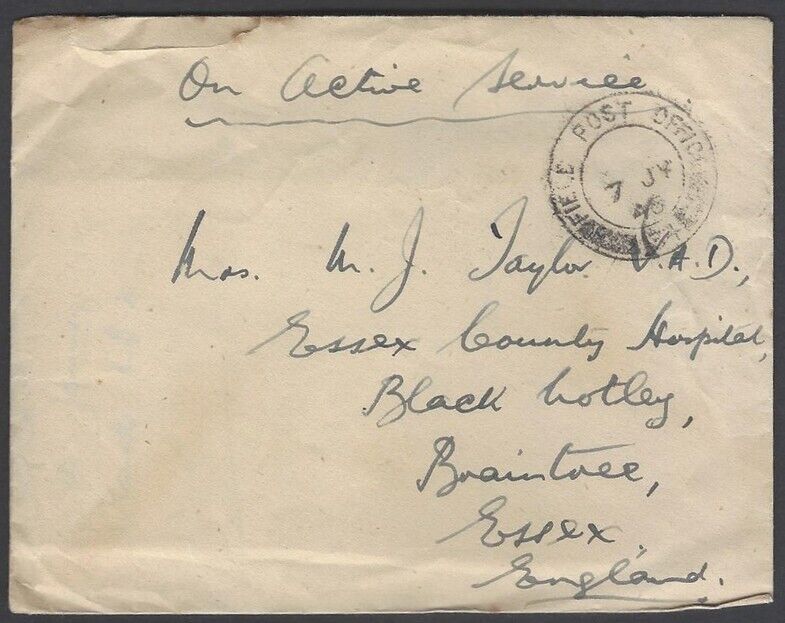 On Active Service
FIELD POST OFFICE
Mrs. M. J. Taylor V.A.D.,
Essex County Hospital,
Black Notley,
Braintree,
Essex.
England.